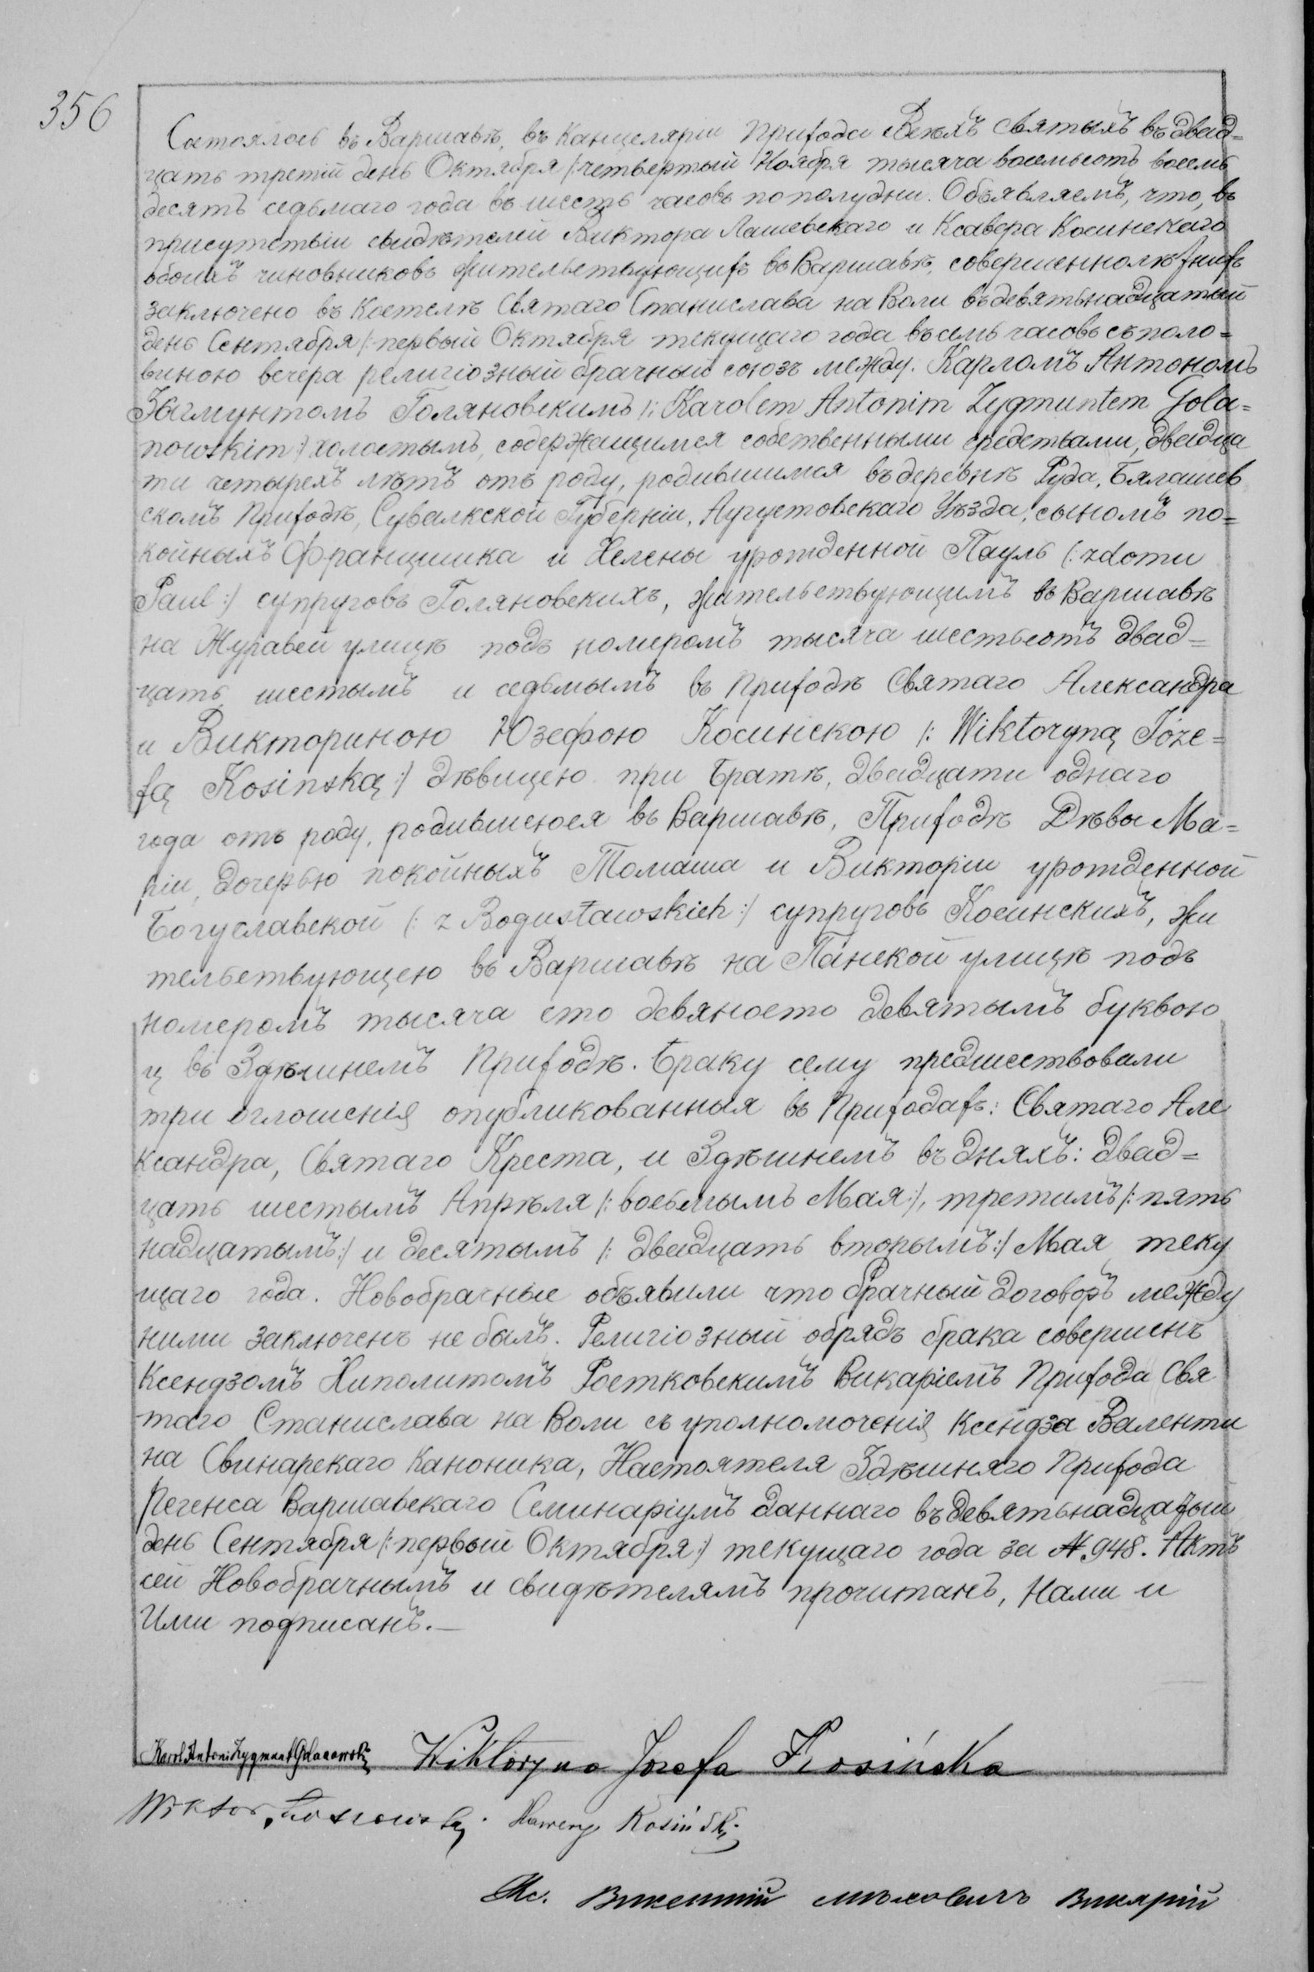 356
Состоялось въ Варшавѣ, въ Канцеляріи Прихода Всѣхъ Святыхъ въ двад=
цать третій день Октября /:четвертый Ноября тысяча восемьсотъ восемь
десятъ седьмаго года въ шесть часовъ пополудни. Объявляемъ, что, въ
присутствіи свидѣтелей Виктора Лашевскаго и Ксавера Косинскаго
обоихъ чиновниковъ жительствующихъ въ Варшавѣ, совершеннолѣтнихъ
заключено въ Костелѣ Святаго Станислава на Воли въ девятьнадцатый
день Сентября /:первый Октября текущаго года въ семь часовъ съ поло=
виною вечера религіозный брачный союзъ между: Карломъ Антономъ
Зыгмунтомъ Голяновскимъ /: Karolem Antonim Zygmuntem Gola=
nowskim:/ холостымъ, содержащимся собственными средствами, двадца
ти четырехъ лѣтъ отъ роду, родившимся въ деревнѣ Руда, Бялашев
скомъ Приходѣ, Сувалкской Губерніи, Аугустовскаго Уѣзда, сыномъ по=
койныхъ Францишка и Хелены урожденной Пауль (: z domu
Paul:/ супруговъ Голяновскихъ, жительствующимъ въ Варшавѣ
на Журавей улицѣ подъ номеромъ тысяча шестьсотъ двад=
цать шестымъ и седьмымъ въ Приходѣ Святаго Александра
и Викториною Юзефою Косинскою /: Wiktoryną Józe=
fą Kosinską:/ дѣвицею при братѣ, двадцати однаго
года отъ роду, родившеюся въ Варшавѣ, Приходѣ Дѣвы Ма=
ріи, дочерью покойныхъ Томаша и Викторіи урожденной
Богуславской (: z Bogusławskich:/ супруговъ Косинскихъ, жи
тельствующею въ Варшавѣ на Панской улицѣ подъ
номеромъ тысяча сто девяносто девятымъ буквою
ц въ Здѣшнемъ Приходѣ. Браку сему предшествовали
три оглошенія опубликованныя въ Приходахъ: Святаго Але
ксандра, Святаго Креста, и Здѣшнемъ въ дняхъ: двад=
цать шестымъ Апрѣля /: восьмымъ Мая:/, третимъ /: пять
надцатымъ:/ и десятымъ /: двадцать вторымъ:/ Мая теку
щаго года. Новобрачные объявили что брачный договоръ между
ними заключенъ не былъ. Религіозный обрядъ брака совершенъ
Ксендзомъ Хиполитомъ Ростковскимъ Викаріемъ Прихода Свя
таго Станислава на Воли съ уполномоченія Ксендза Валенти
на Свинарскаго Каноника, Настоятеля Здѣшняго Прихода
Регенса Варшавскаго Семинаріумъ даннаго въ девятьнадцатый
день Сентября /:первый Октября:/ текущаго года за №.948. Актъ
сей Новобрачнымъ и свидѣтелямъ прочитанъ, Нами и
Ими подписанъ.—
Karol Antoni Zygmunt Golanowski Wiktoryna Józefa Kosińska
Wiktor Kosiński
Кс. Викентій Викарій